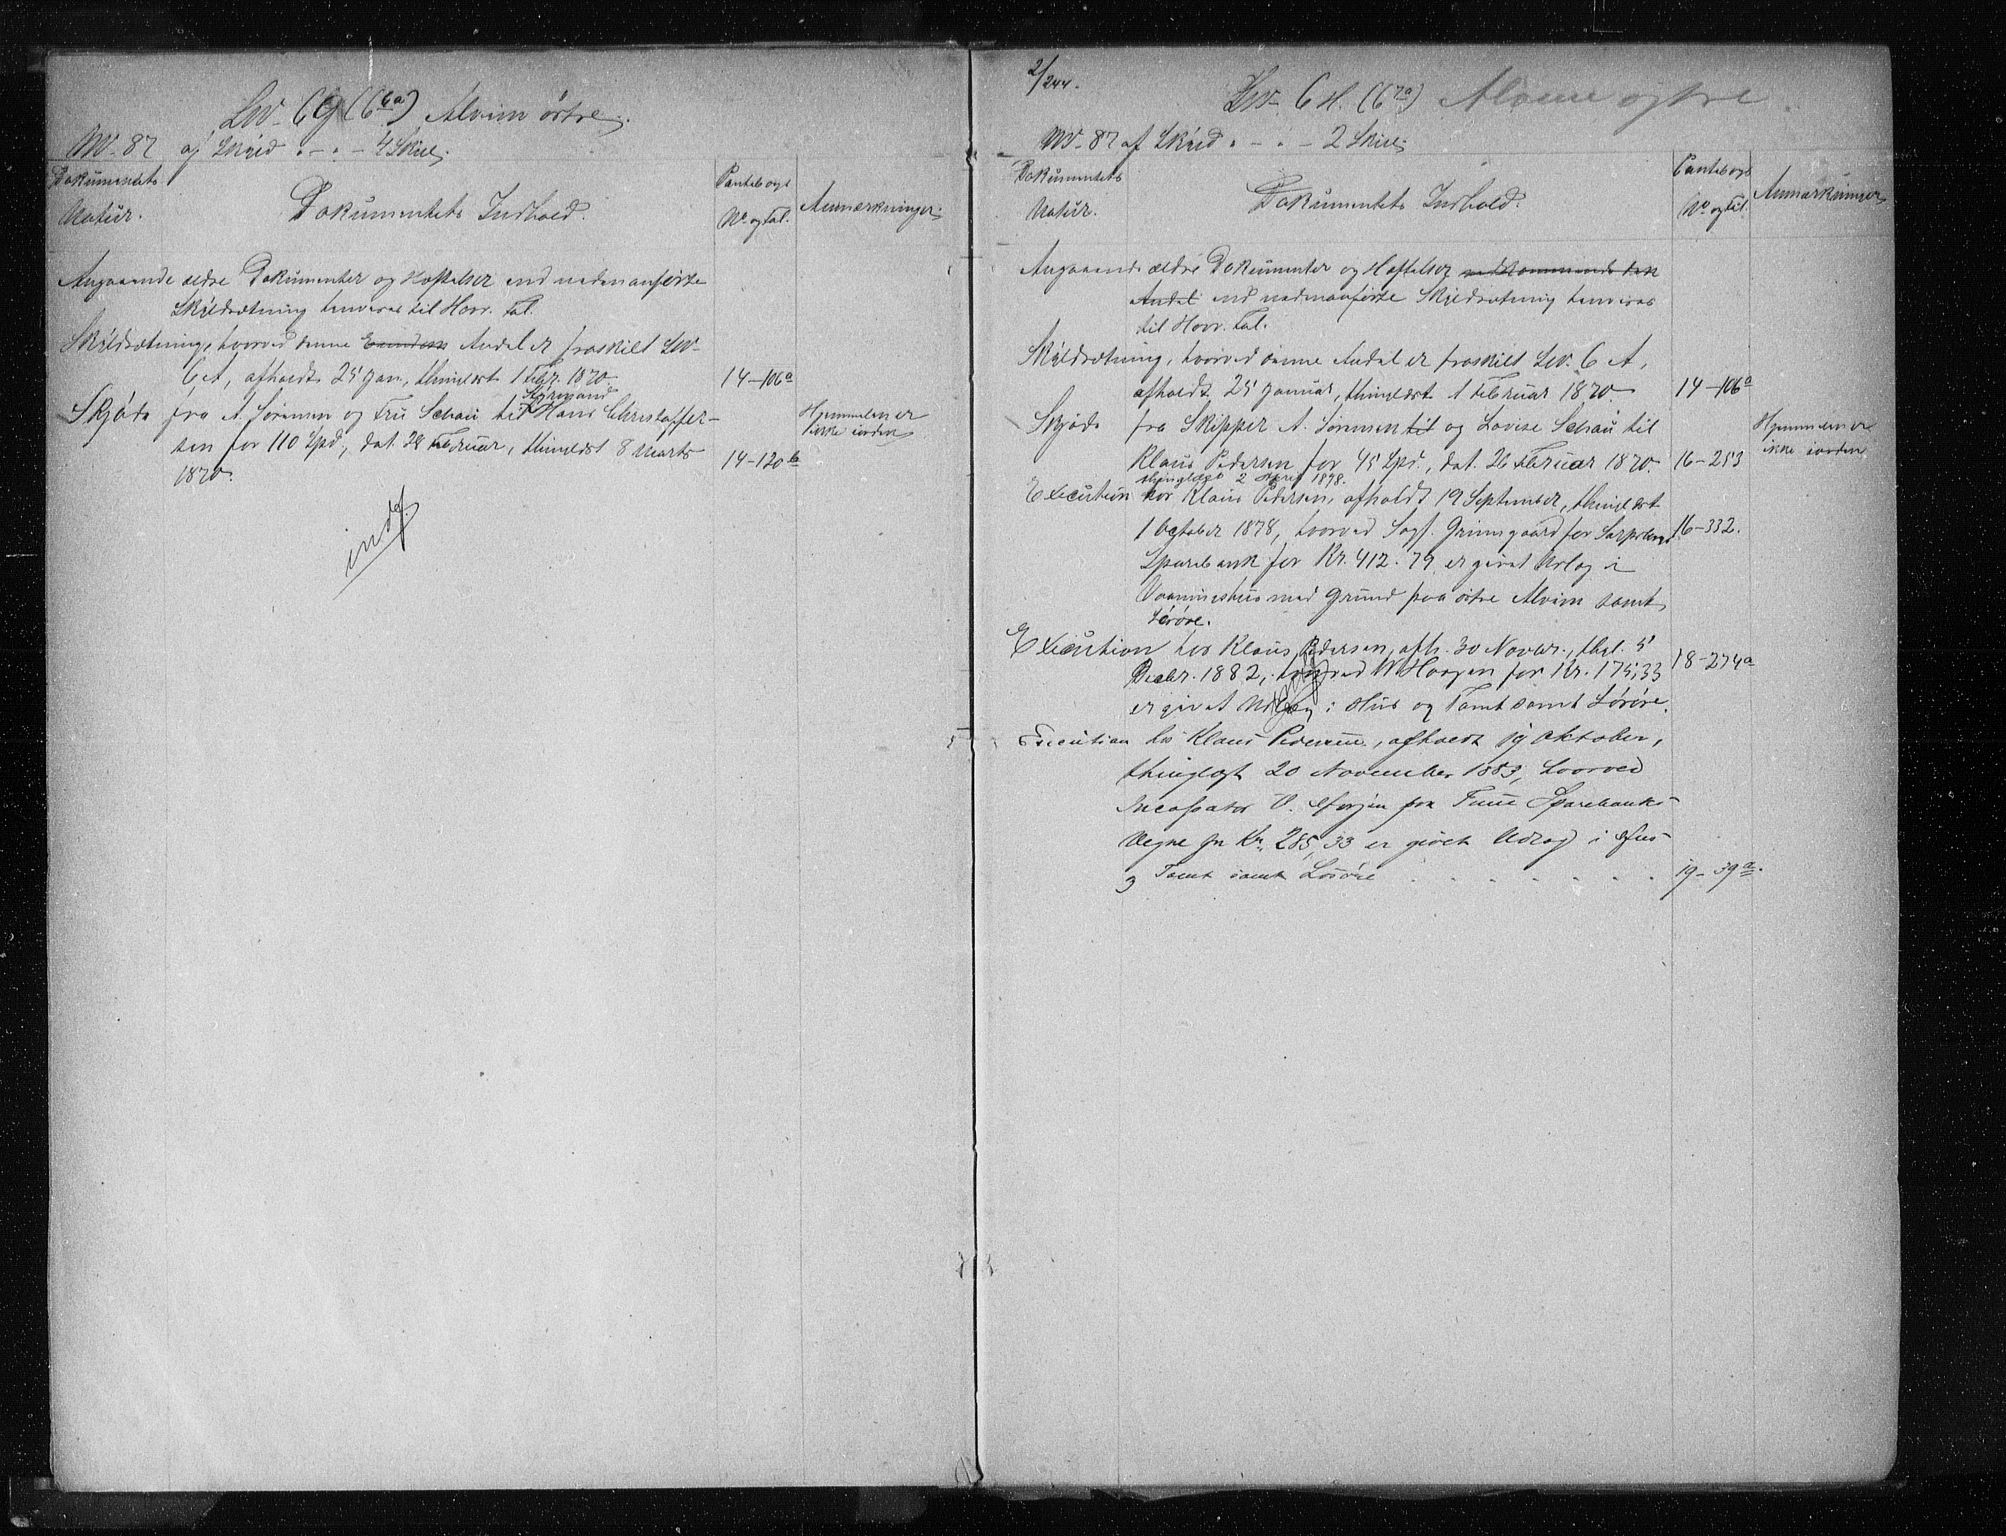 Lnr 6 g (6 6a) Alvim östre.
Mn 87 af Skyld . - . - 4 Skill.
Dokumentets
Natur.
Dokumentets Indhold.
Pantebogs
No og Fol.
Anmærkninger.
Angaaende ældre Dokumenter og Hæftelser end nedenanførte
Skyldsætning henvises til Hovr. Fol.
Skyldsætning, hvorved denne Eiendom Andel er fraskilt Lnr
6 A, afholdt 25 Jan., thinglæst 1 Febr. 1870.
14-106a
Styrmand
Skjöde fra A. Sörensen og Fru Schau til Hans Christoffer-
sen for 110 Spd., dat. 28 Februar, thinglæst 8 Marts
1870.
14-120b
Hjemmelen er
ikke iorden
indf.
2/244.
Lnr 6 H. (6 7a) Alvim östre
Mn 87 af Skyld . - . - 2 Skill.
Dokumentets
Natur.
Dokumentets Indhold.
Pantebogs
No og Fol.
Anmærkninger
Angaaende ældre Dokumenter og Hæftelser vedkommende den
Andel end nedenanförte Skyldsætning henvises
til Hovr. Fol.
Skyldsætning, hvorved denne Andel er fraskilt Lnr. 6 A,
afholdt 25 Januar, thinglæst 1 Februar 1870.
14-106a
Skjöde fra Skipper A. Sörensen til og Lovise Schau til
Klaus Pedersen for 45 Spd., dat. 26 Februar 1870.
16-253
Hjemmelen er
ikke iorden
thinglæst 2 April 1878.
Execution hos Klaus Pedersen, afholdt 19 September, thinglæst
1 October 1878, hvorved Sagf. Grimsgaard for Sarpsborgs
16-332.
Sparebank for Kr. 412.79 er givet Udlæg i
Vaaningshus med Grund paa östre Alvim samt
Lösöre.
Execution hos Klaus Pedersen, afh. 30 Novbr., thgl. 5
Decbr. 1882, hvorved W. Haagen for Kr. 175,33
18-274a
er givet Udlæg i Hus og Tomt samt Lösöre.
Execution hos Klaus Pedersen, afholdt 19 Oktober,
thinglæst 20 November 1883, hvorved
paa Tune Sparebanks
Vegne for Kr. 285,33 er givet Udlæg i Hus
og Tomt samt Lösöre . . . . . . .
19-39a.